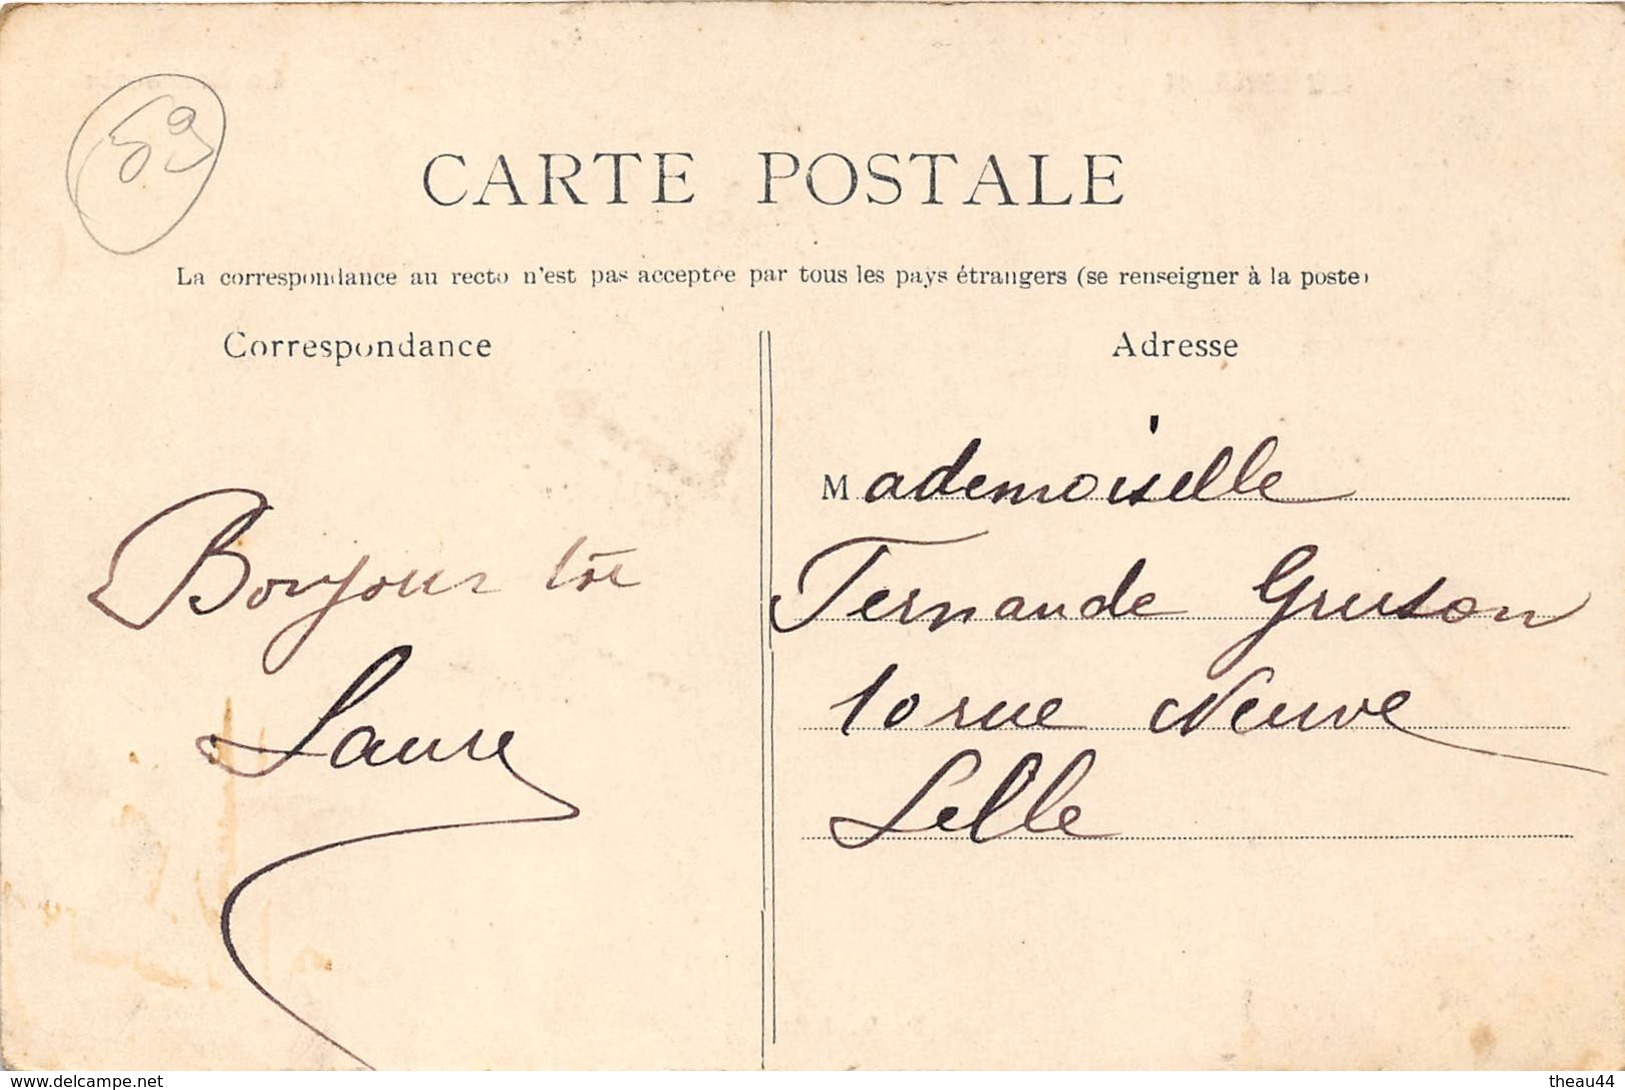 59
CARTE POSTALE
La correspondance au recto n'est pas acceptée par tous les pays étrangers (se renseigner à la poste)
Correspondance
Bonjour
Laure
Adresse
Mademoiselle
Fernande Gruson
10 rue Neuve
Lille
www.delcampe.net
theau44